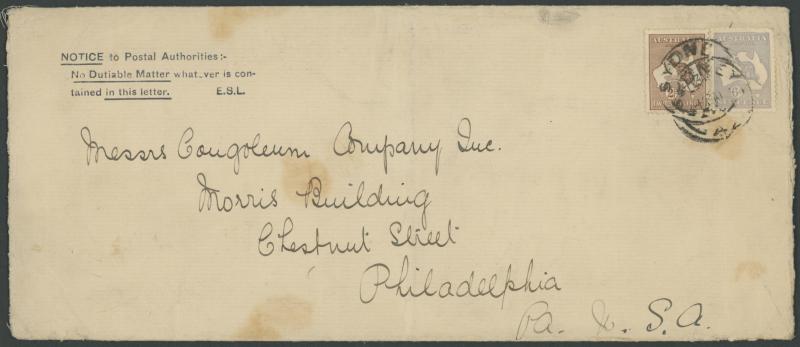 NOTICE to Postal Authorities:-
No Dutiable Matter what_ver is con-
tained in this letter. E.S.L.
AUSTRALIA
AUSTRALIA
SYDNEY
SYDNEY
Messrs Congoleum Company Inc.
Morris Building
Chestnut Street
Philadelphia
Pa. U.S.A.